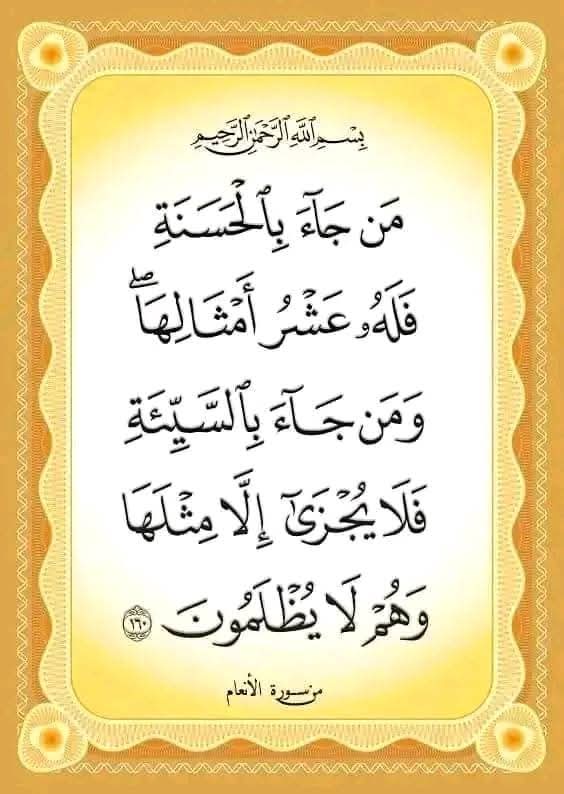 بِسْمِ ٱللَّهِ ٱلرَّحْمَٰنِ ٱلرَّحِيمِ
مَن جَآءَ بِٱلْحَسَنَةِ
فَلَهُۥ عَشْرُ أَمْثَالِهَا ۖ
وَمَن جَآءَ بِٱلسَّيِّئَةِ
فَلَا يُجْزَىٰٓ إِلَّا مِثْلَهَا
وَهُمْ لَا يُظْلَمُونَ ١٦٠
من سورة الأنعام